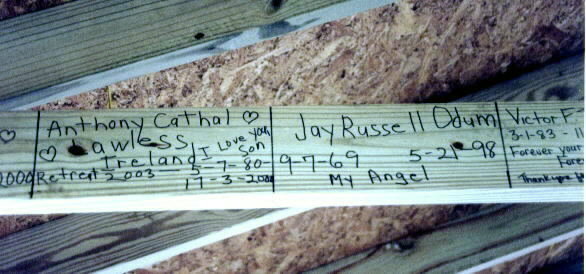 2000
Anthony Cathal ♡
♡ Lawless
Ireland
I Love you
Son
Retreat 2003 — 5-7-80-
17-3-2000
Jay Russell Odum
9-7-69 5-21-98
My Angel
Victor F.
3-1-83 - 1
Forever your
Thank you